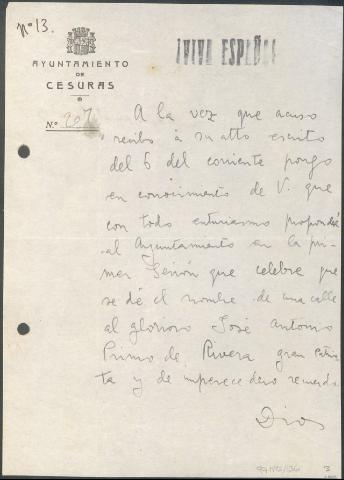 Nº 13.
¡VIVA ESPAÑA!
AYUNTAMIENTO
DE
CESURAS
N.º 207
A la vez que acuso
recibo á su atto escrito
del 6 del corriente pongo
en conocimiento de V. que
con todo entusiasmo propondré
al Ayuntamiento en la pri-
mer Sesión que celebre que
se dé el nombre de una calle
al glorioso José Antonio
Primo de Rivera gran patrio-
ta y de imperecedero recuerdo
Dios
3